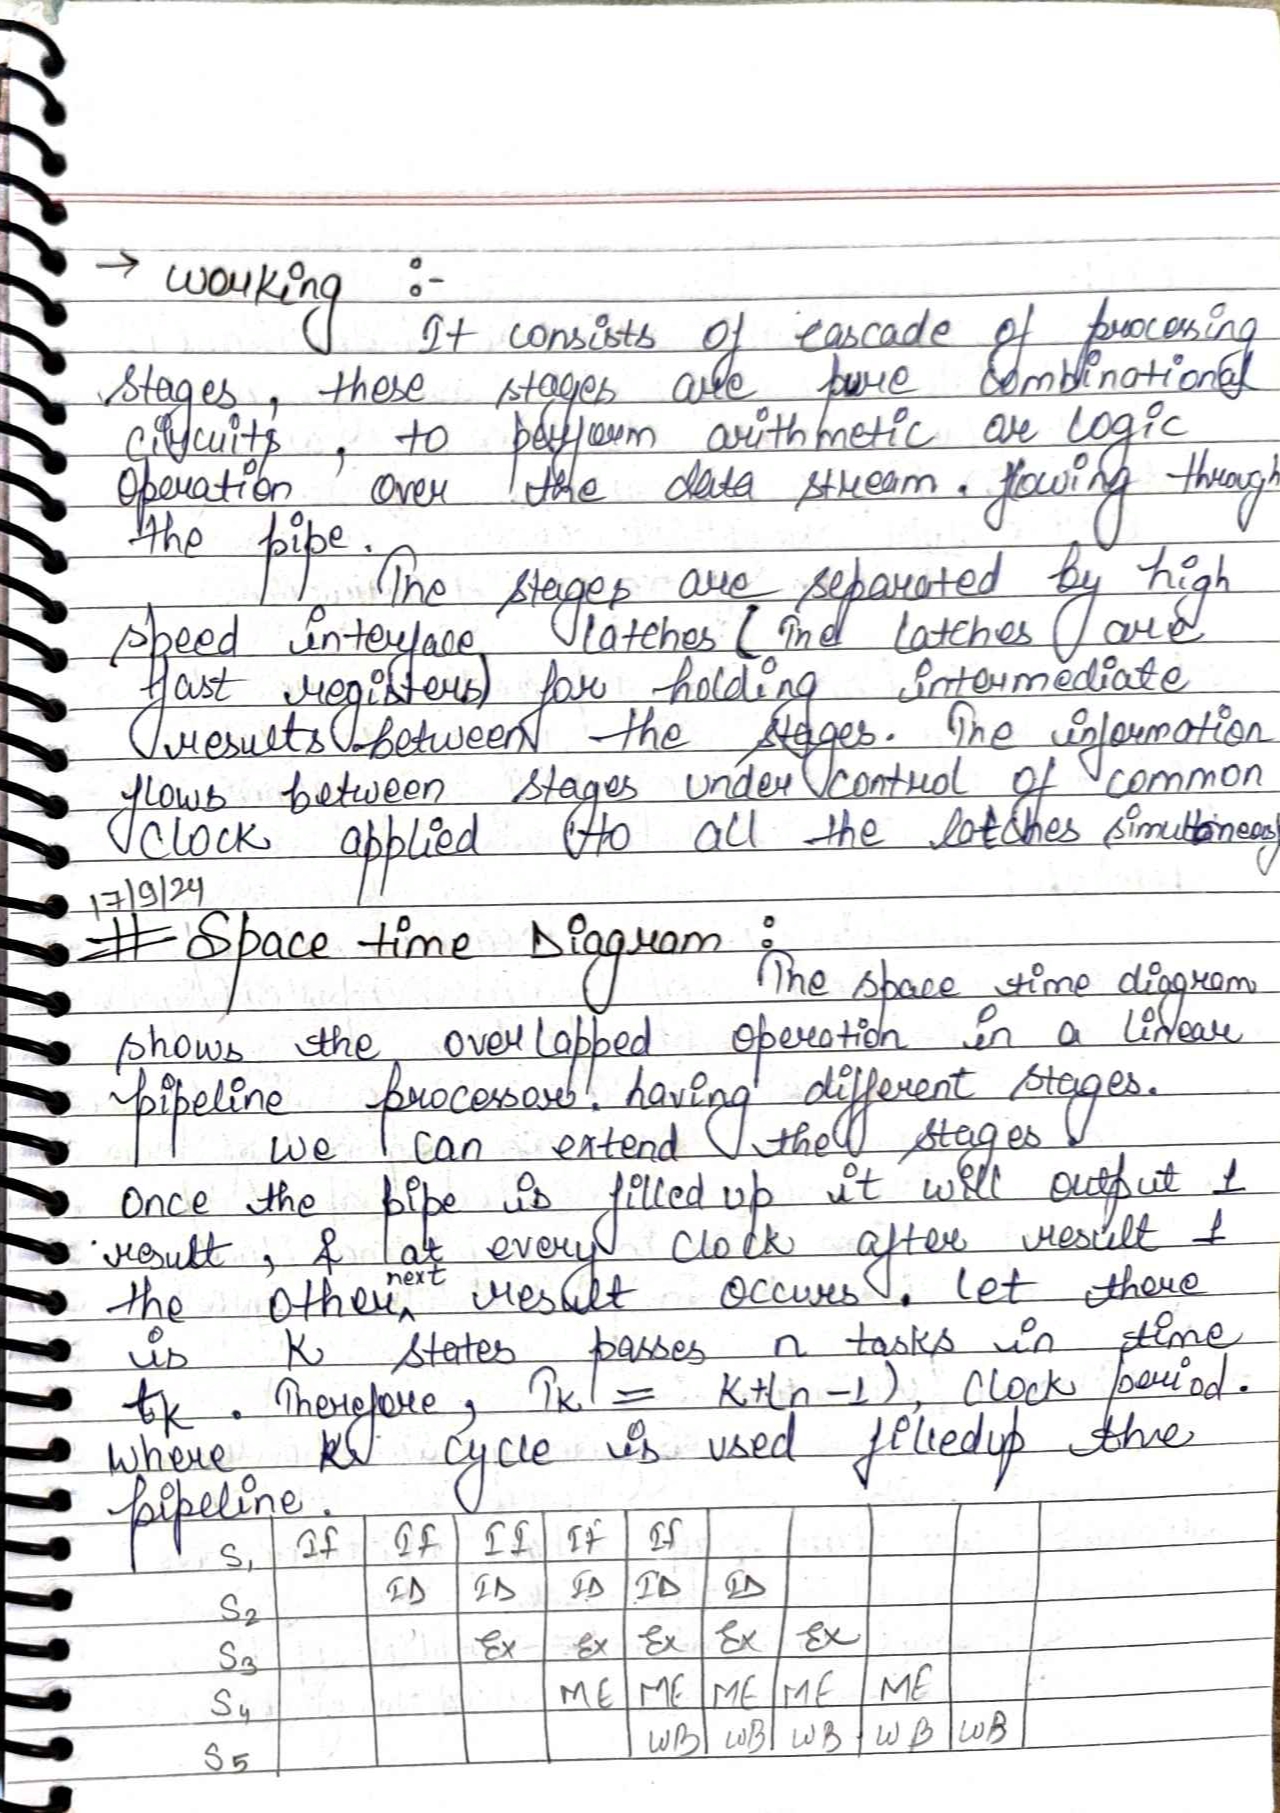 → Working :-
It consists of cascade of processing
stages, these stages are pure combinational
circuits, to perform arithmetic or logic
operation over the data stream. flowing through
the pipe.
The stages are separated by high
speed interface latches (The latches are
fast registers) for holding intermediate
results between the stages. The information
flows between stages under control of common
clock applied to all the latches simultaneously
17/9/24
# Space time Diagram :
The space time diagram
shows the overlapped operation in a linear
pipeline processor. having different stages.
we can extend the stages.
once the pipe is filled up it will output 1
result, & at every clock after result 1
the other next result occurs. let there
is K states passes n tasks in time
tk. Therefore, Tk = K+(n-1), clock period.
where K cycle is used filledup the
pipeline.
S1 If IF IF IF If
S2 ID ID ID ID ID
S3 Ex Ex Ex Ex Ex
S4 ME ME ME ME ME
S5 WB WB WB WB WB